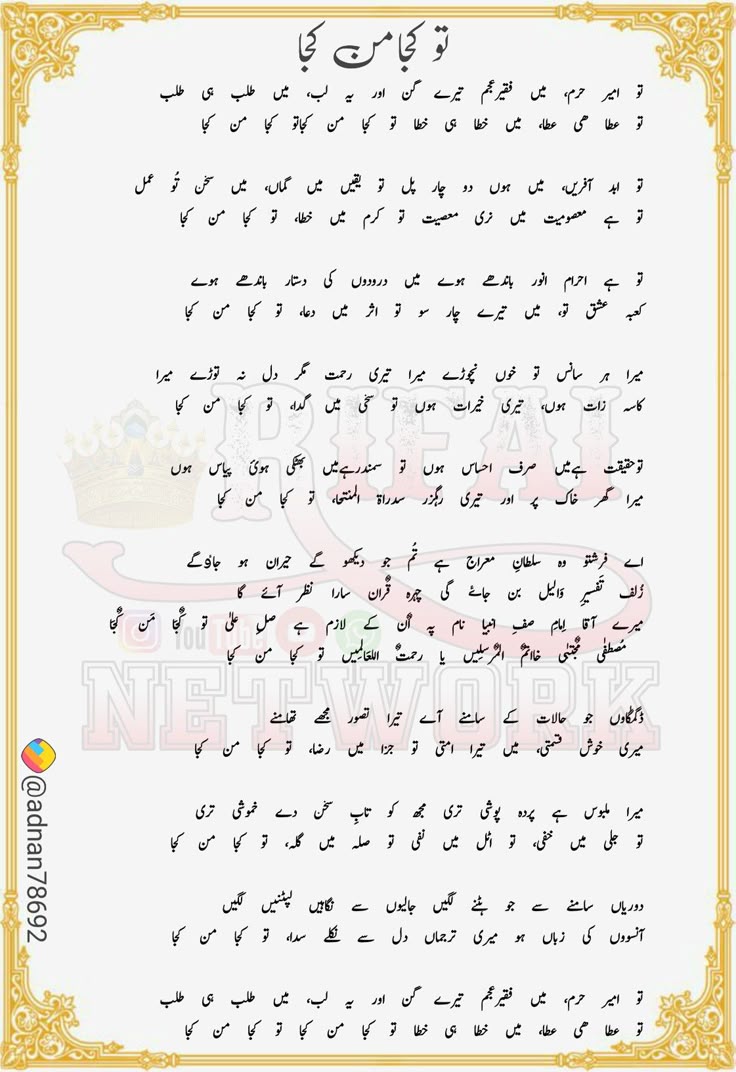 تو کجا من کجا
تو امیر حرم، میں فقیرعجم تیرے گن اور یہ لب، میں طلب ہی طلب
تو عطا ھی عطا، میں خطا ہی خطا تو کجا من کجاتو کجا من کجا
تو ابد آفریں، میں ہوں دو چار پل تو یقیں میں گماں، میں سخن تُو عمل
تو ہے معصومیت میں نری معصیت تو کرم میں خطا، تو کجا من کجا
تو ہے احرام انور باندھے ہوے میں درودوں کی دستار باندھے ہوے
کعبہ عشق تو، میں تیرے چار سو تو اثر میں دعا، تو کجا من کجا
میرا ہر سانس تو خوں نچوڑے میرا تیری رحمت مگر دل نہ توڑے میرا
کاسہ زات ہوں، تیری خیرات ہوں تو سخی میں گدا، تو کجا من کجا
توحقیقت ہےمیں صرف احساس ہوں تو سمندرہےمیں بھٹکی ہوئ پیاس ہوں
میرا گھر خاک پر اور تیری رہگزر سدراۃ المنتحا، تو کجا من کجا
اے فرشتو وہ سلطانِ معراج ہے تُم جو دیکھو گے حیران ہو جاؤگے
زُلف تَفسیرِ وَالیل بن جائے گی چہرہ قُرآن سارا نظر آئے گا
میرے آقا اِمامِ صفِ انبیا نام پہ اُن کے لازم ہے صلِ علیٰ تو کُجَا مَن کُجَا
مُصطفٰی مُجتبٰی خاتمُ المُرسلِیں یا رحمتُ اللعَالمِیں تو کجا من کجا
ڈگمگاوں جو حالات کے سامنے آے تیرا تصور مجھے تھامنے
میری خوش قسمتی، میں تیرا امتی تو جزا میں رضا، تو کجا من کجا
میرا ملبوس ہے پردہ پوشی تری مجھ کو تابِ سخن دے خموشی تری
تو جلی میں خفی، تو اٹل میں نفی تو صلہ میں گلہ، تو کجا من کجا
دوریاں سامنے سے جو ہٹنے لگیں جالیوں سے نگاہیں لپٹنیں لگیں
آنسووں کی زباں ہو میری ترجماں دل سے نکلے سدا، تو کجا من کجا
تو امیر حرم، میں فقیرعجم تیرے گن اور یہ لب، میں طلب ہی طلب
تو عطا ھی عطا، میں خطا ہی خطا تو کجا من کجا تو کجا من کجا
RIFAI
YouTube
NETWORK
@adnan78692